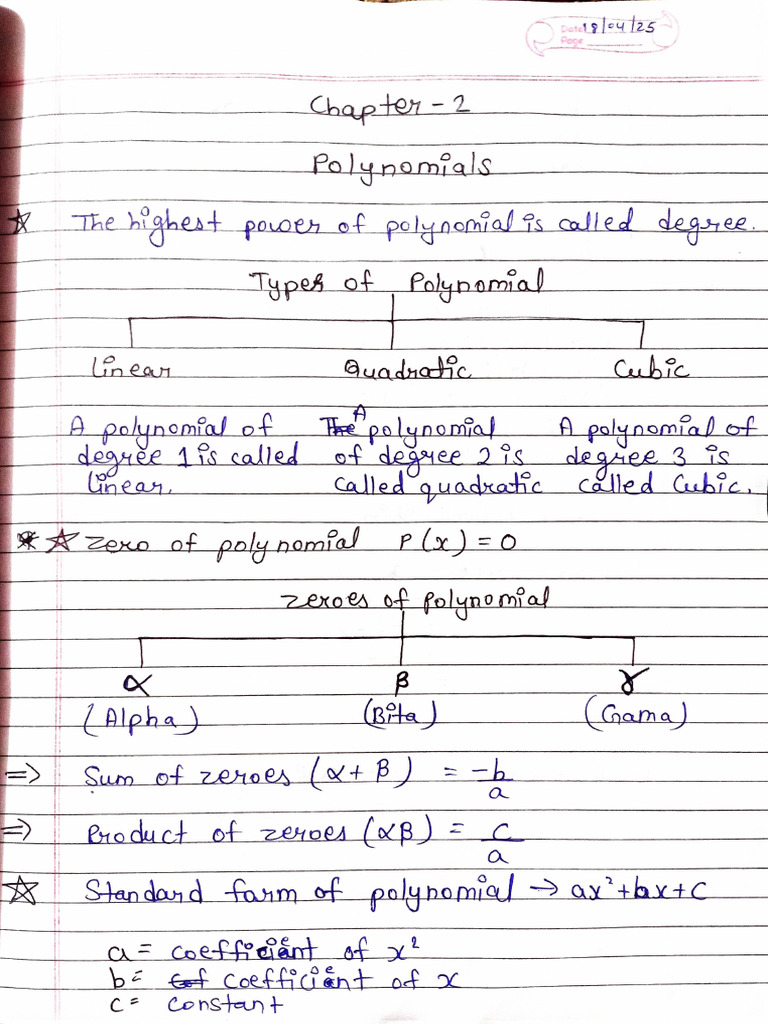 Date 18/04/25
Page
Chapter - 2
Polynomials
☆ The highest power of polynomial is called degree.
Types of Polynomial
Linear Quadratic Cubic
A polynomial of degree 1 is called linear.
A polynomial of degree 2 is called quadratic
A polynomial of degree 3 is called Cubic.
☆ Zero of polynomial P(x) = 0
Zeroes of polynomial
α β γ
(Alpha) (Bita) (Gama)
⇒ Sum of zeroes (α + β) = -b/a
⇒ Product of zeroes (αβ) = c/a
☆ Standard farm of polynomial → ax²+bx+c
a = coefficient of x²
b = coefficient of x
c = constant